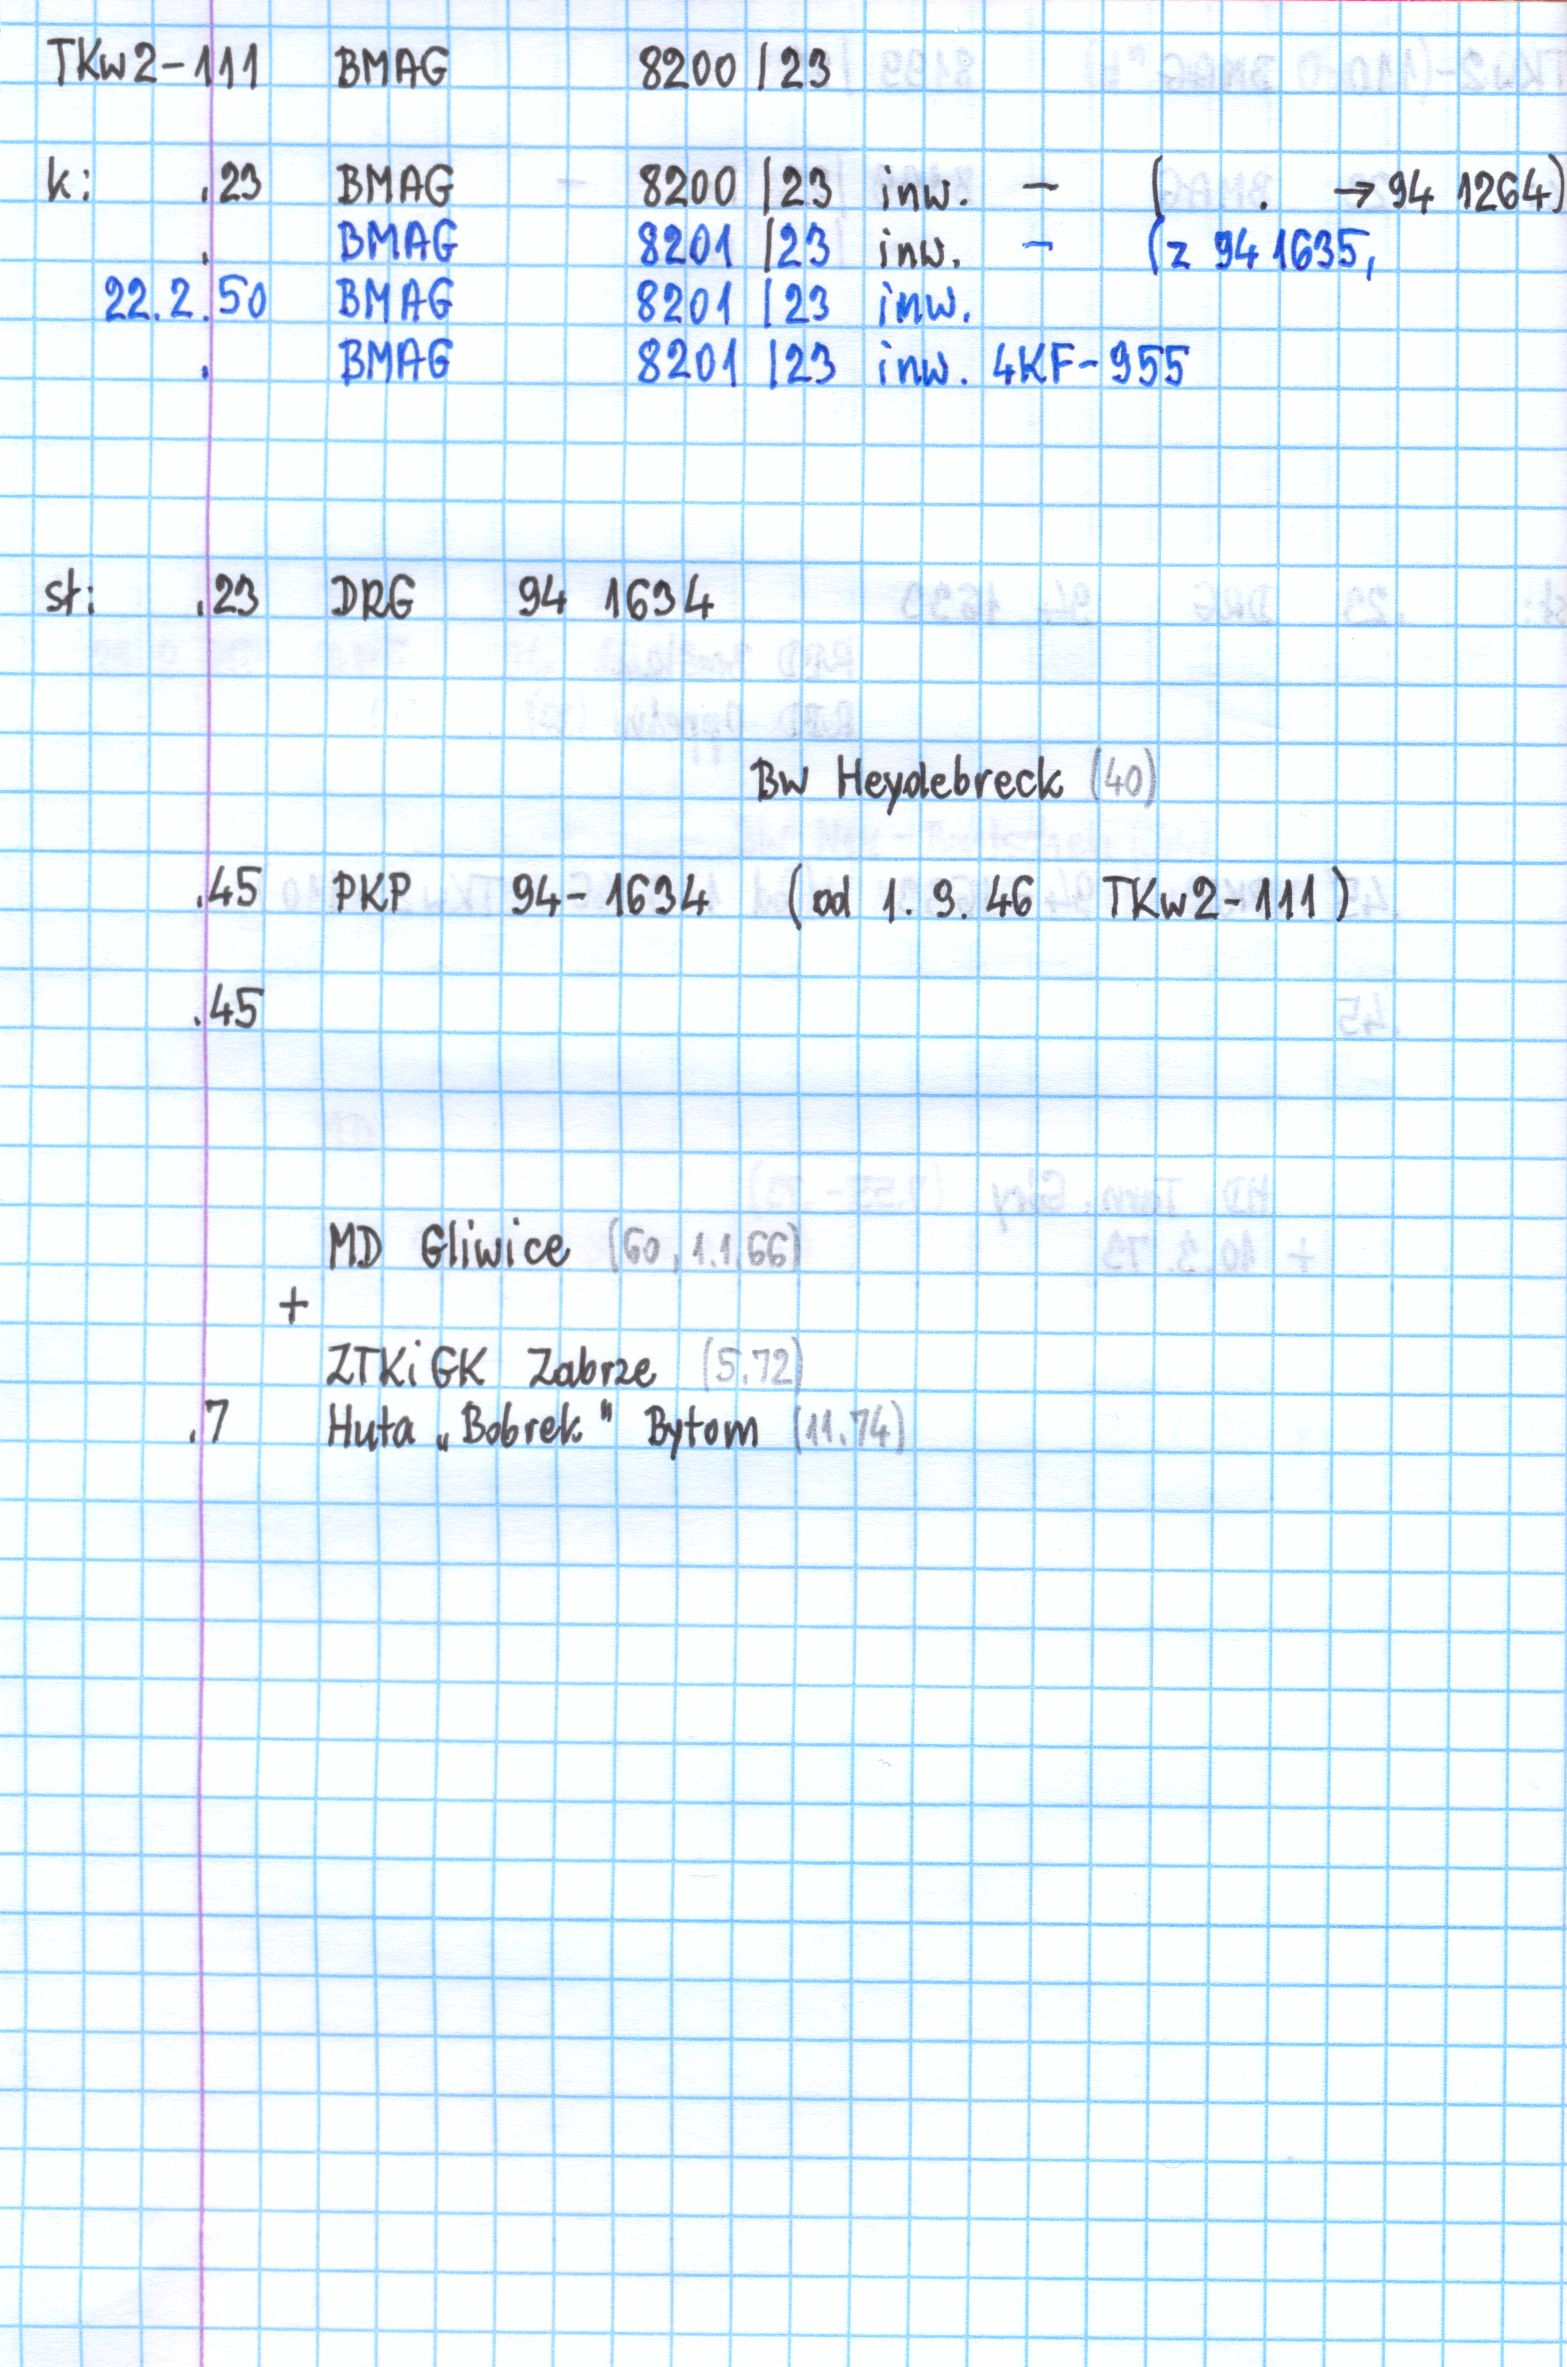 TKw2-111 BMAG 8200 /23
k: .23 BMAG 8200 /23 inw. - ( . → 94 1264)
. BMAG 8201 /23 inw. - (z 94 1635,
22.2.50 BMAG 8201 /23 inw.
. BMAG 8201 /23 inw. 4KF-955
st: .23 DRG 94 1634
Bw Heydebreck (40)
.45 PKP 94-1634 (od 1.9.46 TKw2-111)
.45
MD Gliwice (60, 1.1.66)
+
ZTKiGK Zabrze (5.72)
.7 Huta „Bobrek" Bytom (11.74)